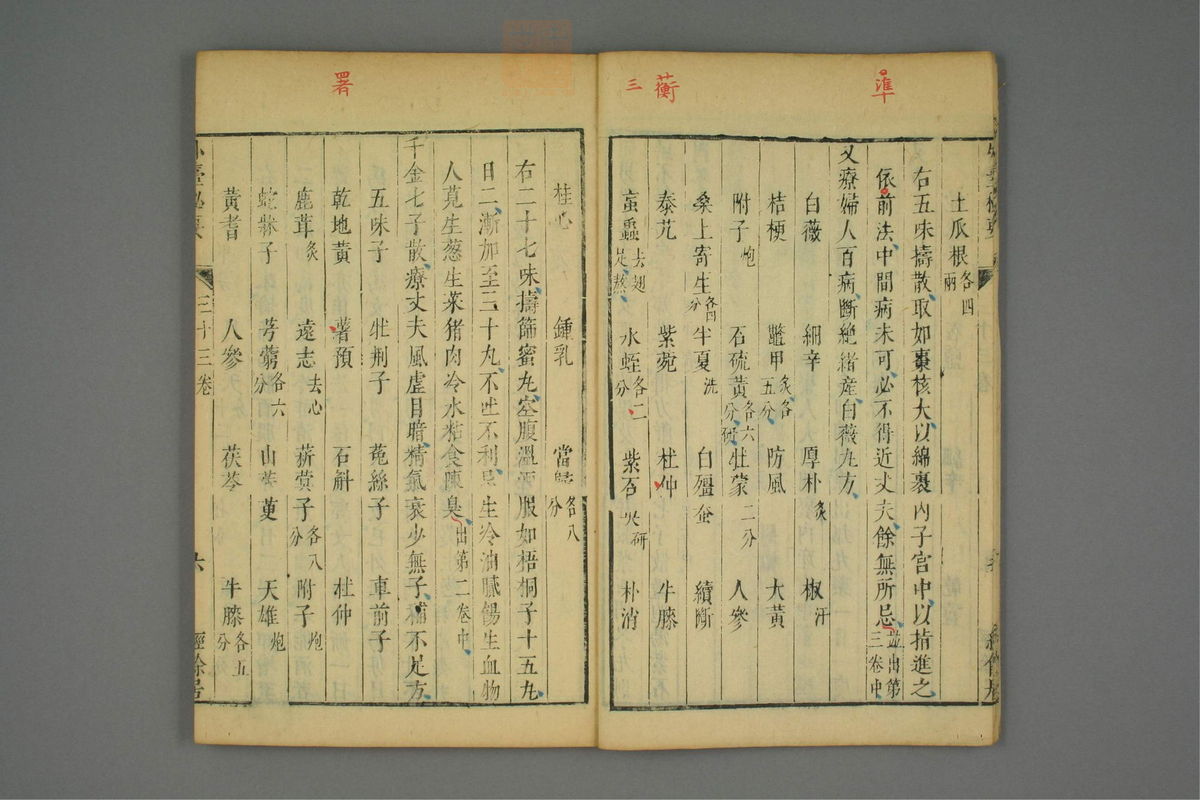 準
蘅
三
土瓜根各四兩
右五味擣散取如棗核大以綿裹內子宮中以指進之
依前法中間病未可必不得近丈夫餘無所忌並出第三卷中
又療婦人百病斷絶緒産白薇丸方
白薇 細辛 厚朴炙 椒汗
桔梗 鼈甲炙各五分 防風 大黃
附子炮 石硫黃各六分研 牡蒙二分 人參
桑上寄生各四分 半夏洗 白殭蚕 續斷
秦艽 紫菀 杜仲 牛膝
蝱蟲去翅足熬 水蛭各二分 紫石英研 朴消
署
桂心 鍾乳 當歸各八分
右二十七味擣篩蜜丸空腹溫酒服如梧桐子十五丸
日二漸加至三十丸不吐不利忌生冷油膩餳生血物
人莧生葱生菜猪肉冷水粘食陳臭出第二卷中
千金七子散療丈夫風虛目暗精氣衰少無子補不足方
五味子 牡荆子 菟絲子 車前子
乾地黃 薯預 石斛 杜仲
鹿茸炙 遠志去心 菥蓂子各八分 附子炮
蛇牀子 芎藭各六分 山茱萸 天雄炮
黃耆 人參 茯苓 牛膝各五分
三十三卷
六
經餘居